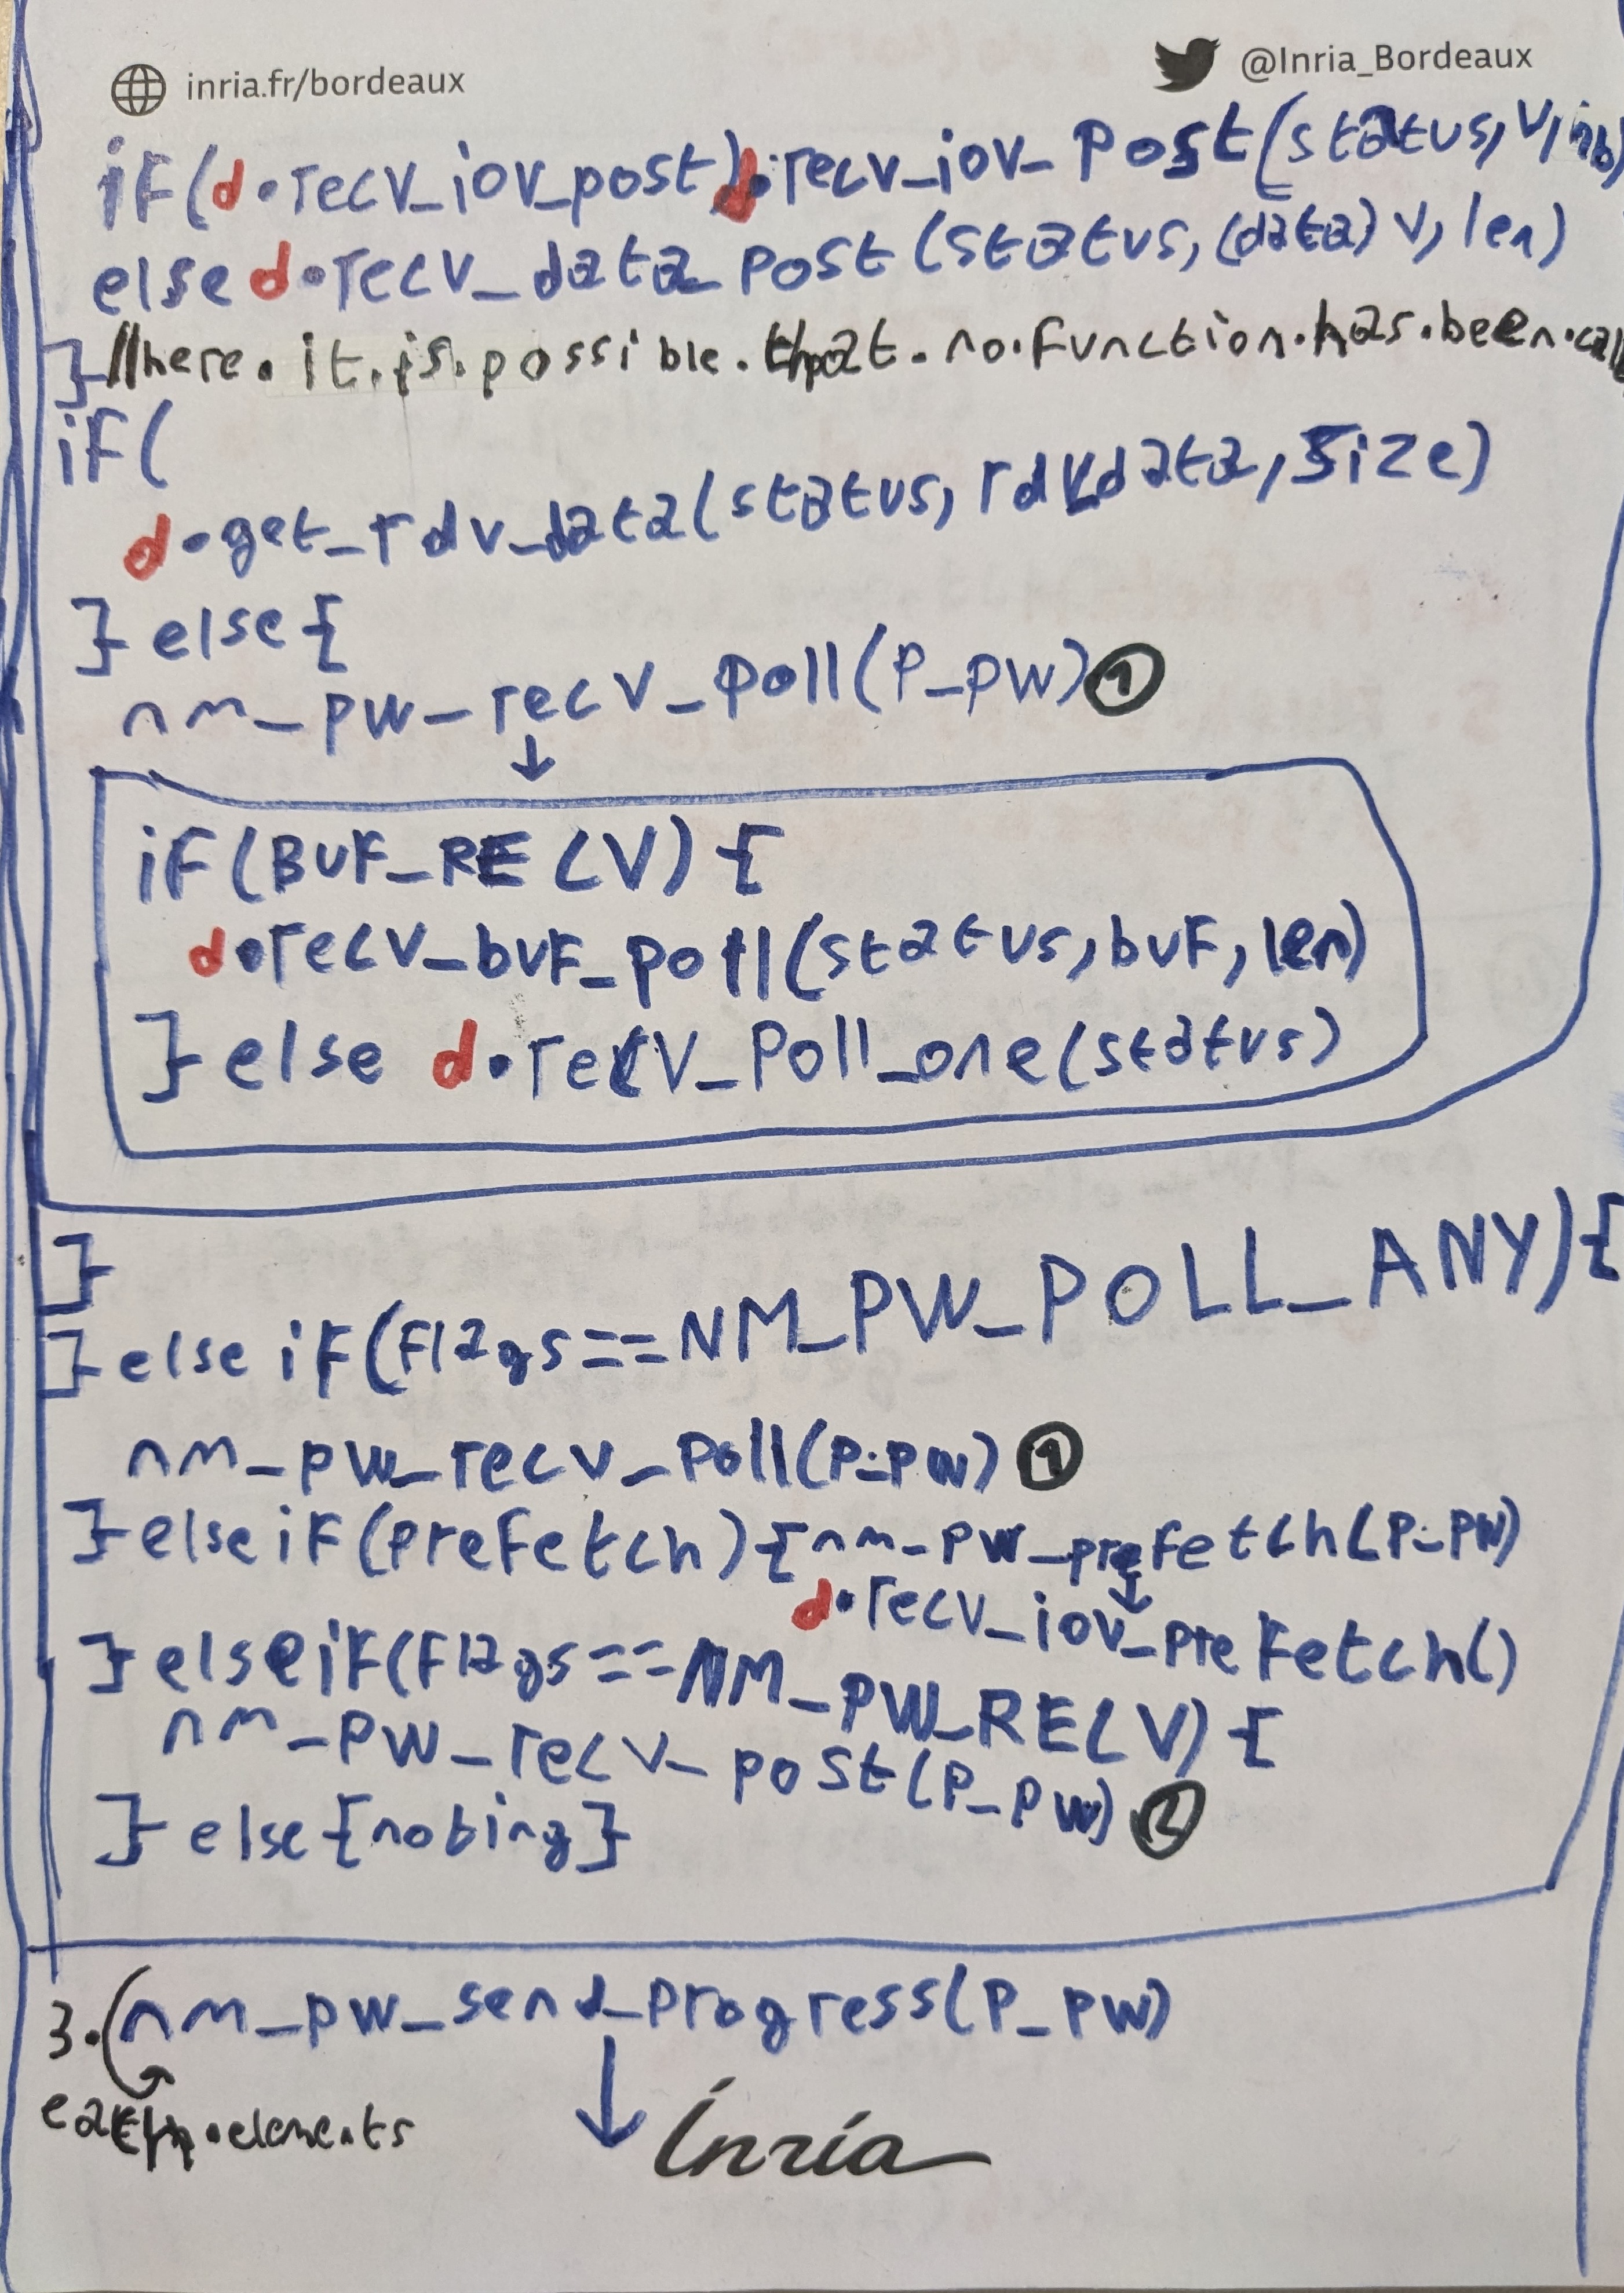 inria.fr/bordeaux
@Inria_Bordeaux
if(d.recv_iov_post)d.recv_iov_post(status,v,nb)
else d.recv_data_post(status,(data)v,len)
}//here.it.is.possible.that.no.function.has.been.call
if(
d.get_rdv_data(status,rdvdata,size)
}else{
nm_pw_recv_poll(p_pw)①
↓
if(BUF_RECV){
d.recv_buf_poll(status,buf,len)
}else d.recv_poll_one(status)
}
}else if(flags==NM_PW_POLL_ANY){
nm_pw_recv_poll(p_pw)①
}else if(prefetch){nm_pw_prefetch(p_pw)
↓
d.recv_iov_prefetch()
}else if(flags==NM_PW_RECV){
nm_pw_recv_post(p_pw)②
}else{nobing}
3.(nm_pw_send_progress(p_pw)
each.elements
↓
Inria